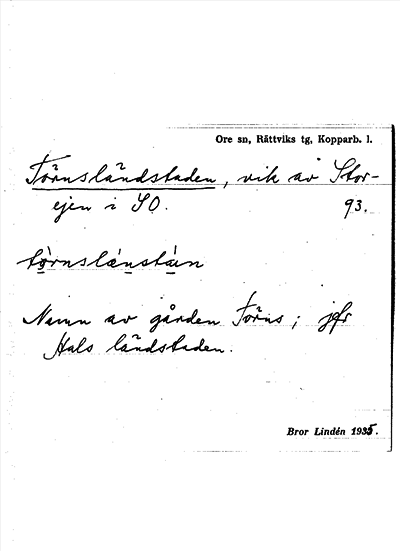 Ore sn, Rättviks tg, Kopparb. l.
Törnsländstaden, vik av Stor-
ejen i SO. 93.
tö̀rnslä́nstán
Namn av gården Törns; jfr
Hals ländstaden.
Bror Lindén 1935.